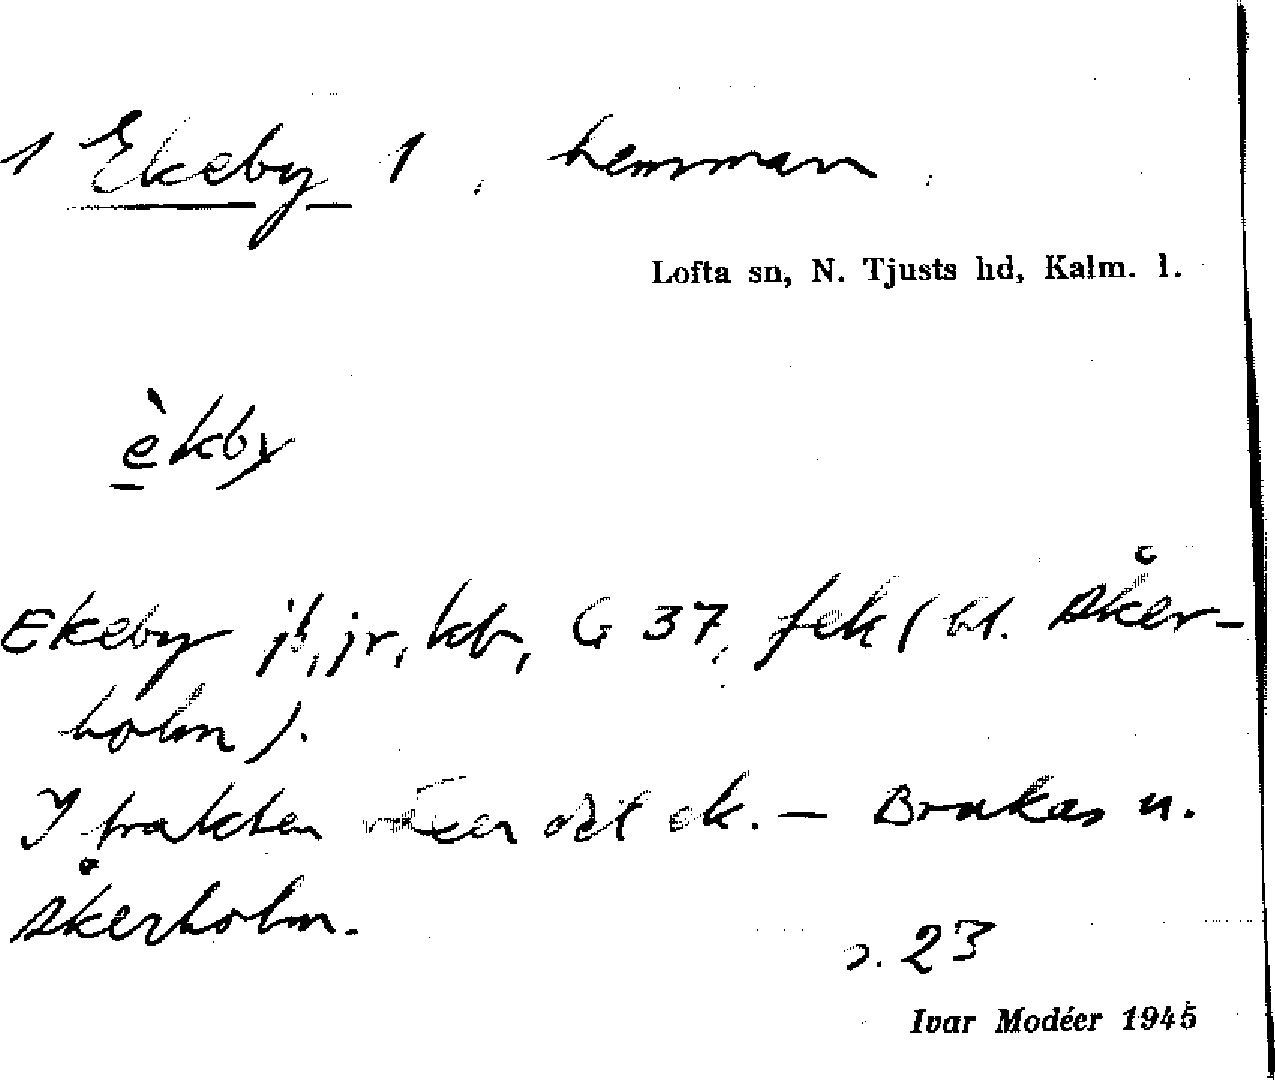 1 Ekeby 1, hemman.
Lofta sn, N. Tjusts hd, Kalm. l.
èkby
Ekeby jb, jr, kb, G 37, fek (bl. Åker-
holm).
I trakten växer det ek. — Brukas u.
Åkerholm.
s. 23
Ivar Modéer 1945